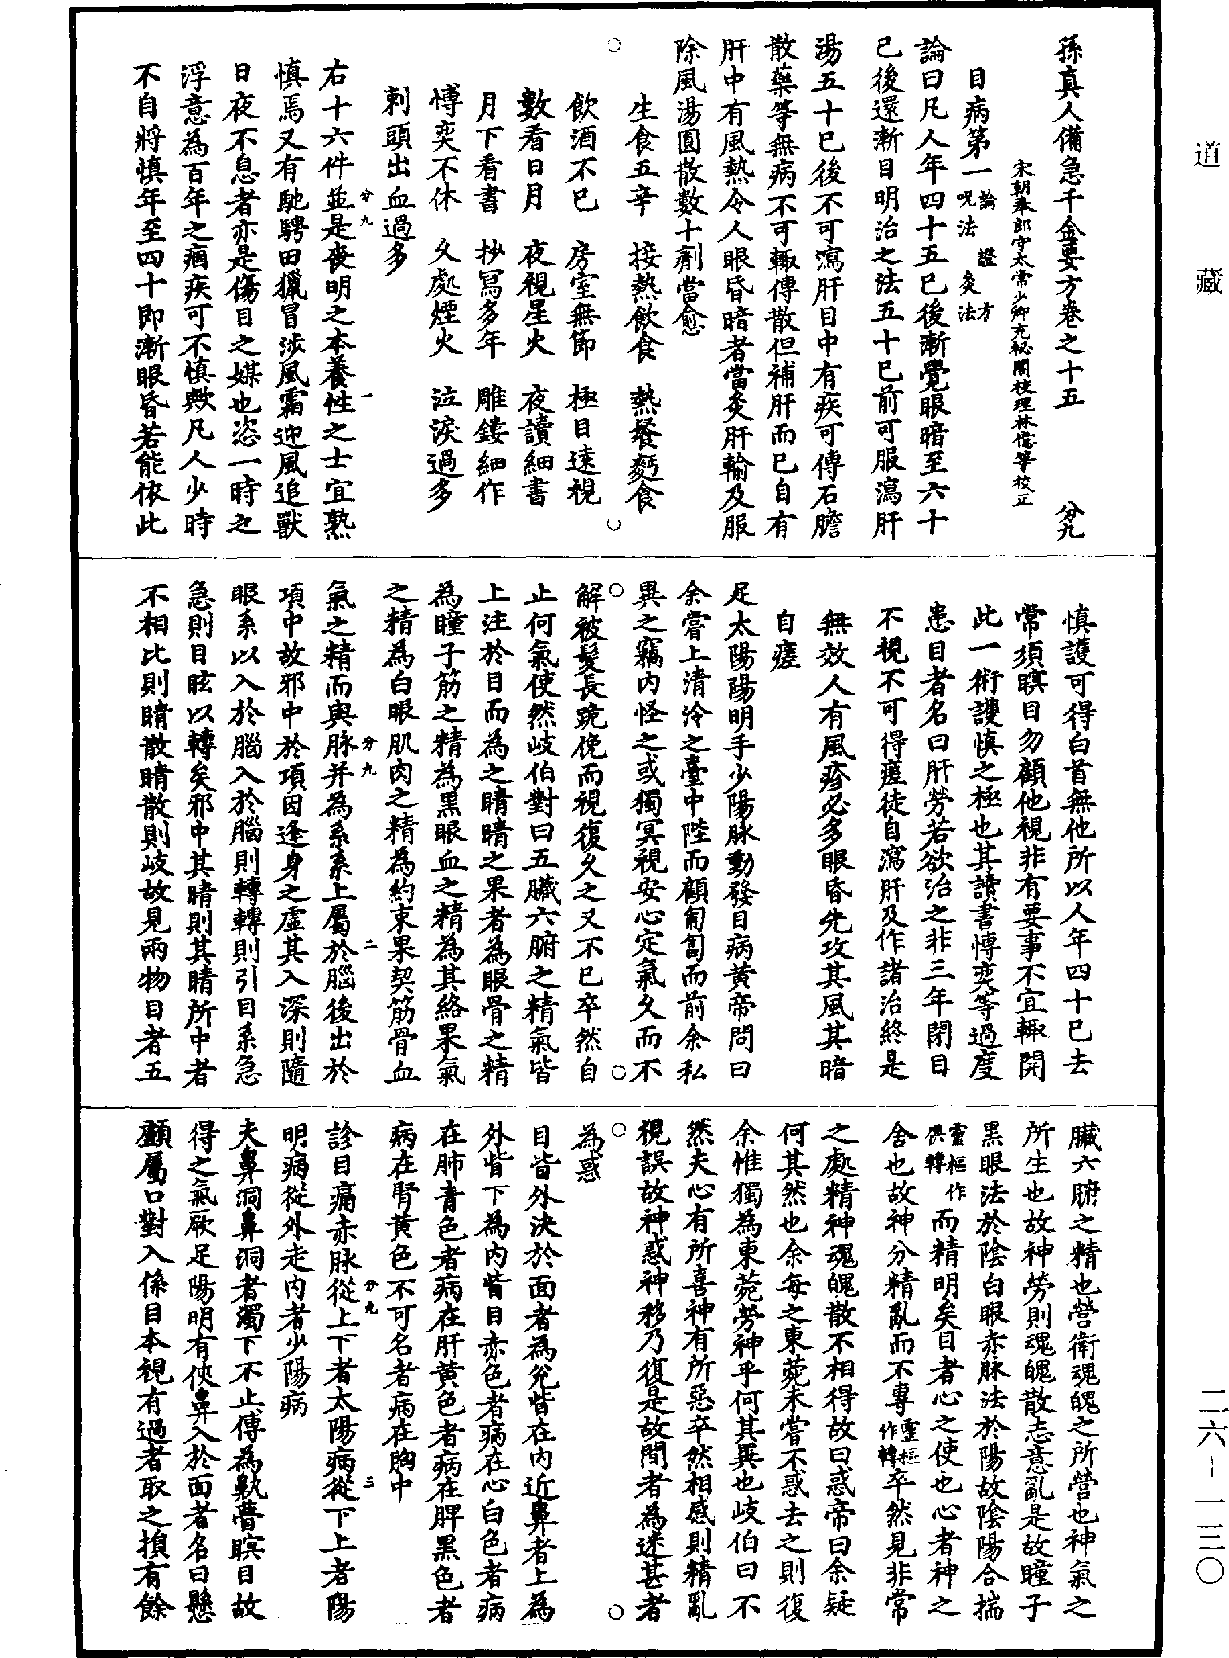 道藏
孫真人備急千金要方卷之十五 分九
宋朝奉郎守太常少卿充秘閣校理林億等校正
目病第一 論 證 方 呪法 灸法
論曰凡人年四十五已後漸覺眼暗至六十
已後還漸目明治之法五十已前可服瀉肝
湯五十已後不可瀉肝目中有疾可傅石膽
散藥等無病不可輙傅散但補肝而已自有
肝中有風熱令人眼昏暗者當灸肝輸及服
除風湯圓散數十劑當愈
生食五辛 接熱飲食 熱飡麪食
飲酒不已 房室無節 極目遠視
數看日月 夜視星火 夜讀細書
月下看書 抄寫多年 雕鏤細作
愽奕不休 久處煙火 泣淚過多
刺頭出血過多
右十六件並是喪明之本養性之士宜熟
分九 一
慎焉又有馳騁田獵冒涉風霜迎風追獸
日夜不息者亦是傷目之媒也恣一時之
浮意為百年之痼疾可不慎歟凡人少時
不自將慎年至四十即漸眼昏若能依此
慎護可得白首無他所以人年四十已去
常須瞑目勿顧他視非有要事不宜輙開
此一術護慎之極也其讀書愽奕等過度
患目者名曰肝勞若欲治之非三年閉目
不視不可得瘥徒自瀉肝及作諸治終是
無效人有風疹必多眼昏先攻其風其暗
自瘥
足太陽陽明手少陽脉動發目病黄帝問曰
余嘗上清泠之臺中陛而顧匍匐而前余私
異之竊内怪之或獨冥視安心定氣久而不
解被髮長跪俛而視復久之又不已卒然自
止何氣使然岐伯對曰五臟六腑之精氣皆
上注於目而為之睛睛之果者為眼骨之精
為瞳子筋之精為黑眼血之精為其絡果氣
之精為白眼肌肉之精為約束果契筋骨血
氣之精而與脉并為系系上屬於腦後出於
分九 二
項中故邪中於項因逢身之虚其入深則隨
眼系以入於腦入於腦則轉轉則引目系急
急則目眩以轉矣邪中其睛則其睛所中者
不相比則睛散睛散則岐故見兩物目者五
臟六腑之精也營衛魂魄之所營也神氣之
所生也故神勞則魂魄散志意亂是故瞳子
黑眼法於陰白眼赤脉法於陽故陰陽合揣
靈樞作俱轉 而精明矣目者心之使也心者神之
舍也故神分精亂而不專靈樞作轉卒然見非常
之處精神魂魄散不相得故曰惑帝曰余疑
何其然也余每之東菀未嘗不惑去之則復
余惟獨為東菀勞神乎何其異也岐伯曰不
然夫心有所喜神有所惡卒然相感則精亂
視誤故神惑神移乃復是故間者為迷甚者
為惑
目眥外決於面者為兊眥在内近鼻者上為
外眥下為内眥目赤色者病在心白色者病
在肺青色者病在肝黄色者病在脾黑色者
病在腎黄色不可名者病在胸中
診目痛赤脉從上下者太陽病從下上者陽
分九 三
明病從外走内者少陽病
夫鼻洞鼻洞者濁下不止傅為鼽瞢瞑目故
得之氣厥足陽明有俠鼻入於面者名曰懸
顱屬口對入係目本視有過者取之損有餘
二六-一三〇